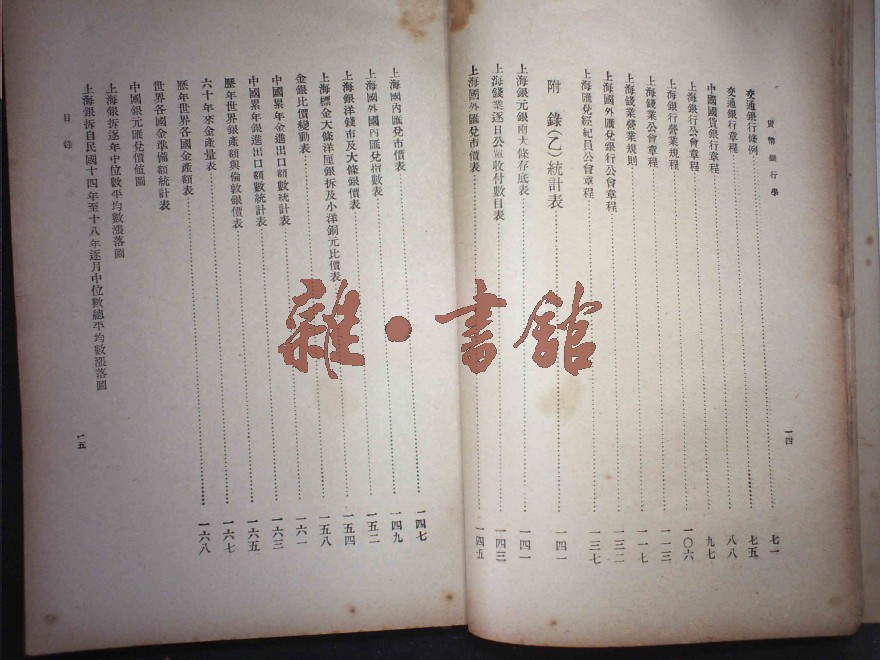 貨幣銀行學
一四
交通銀行條例……七一
交通銀行章程……七五
中國國貨銀行章程……八八
上海銀行公會章程……九七
上海銀行營業規程……一〇六
上海錢業公會章程……一一三
上海錢業營業規則……一一七
上海國外匯兌銀行公會章程……一三二
上海匯兌經紀員公會章程……一三七
附錄(乙)統計表……一四一
上海銀元銀兩大條存底表……一四一
上海錢業逐日公單收付數目表……一四三
上海國外匯兌市價表……一四五
上海國內匯兌市價表……一四七
上海國外國內匯兌指數表……一四九
上海銀洋錢市及大條銀價表……一五二
上海標金大條洋厘銀拆及小洋銅元比價表……一五四
金銀比價變動表……一五八
中國累年金進出口額數統計表……一六一
中國累年銀進出口額數統計表……一六三
歷年世界銀產額與倫敦銀價表……一六五
六十年來金產量表……一六七
歷年世界各國金產額表……一六八
世界各國金準備額統計表
中國銀元匯兌價值圖
上海銀拆逐年中位數平均數漲落圖
上海銀拆自民國十四年至十八年逐月中位數總平均數漲落圖
目錄
一五
雜·書館